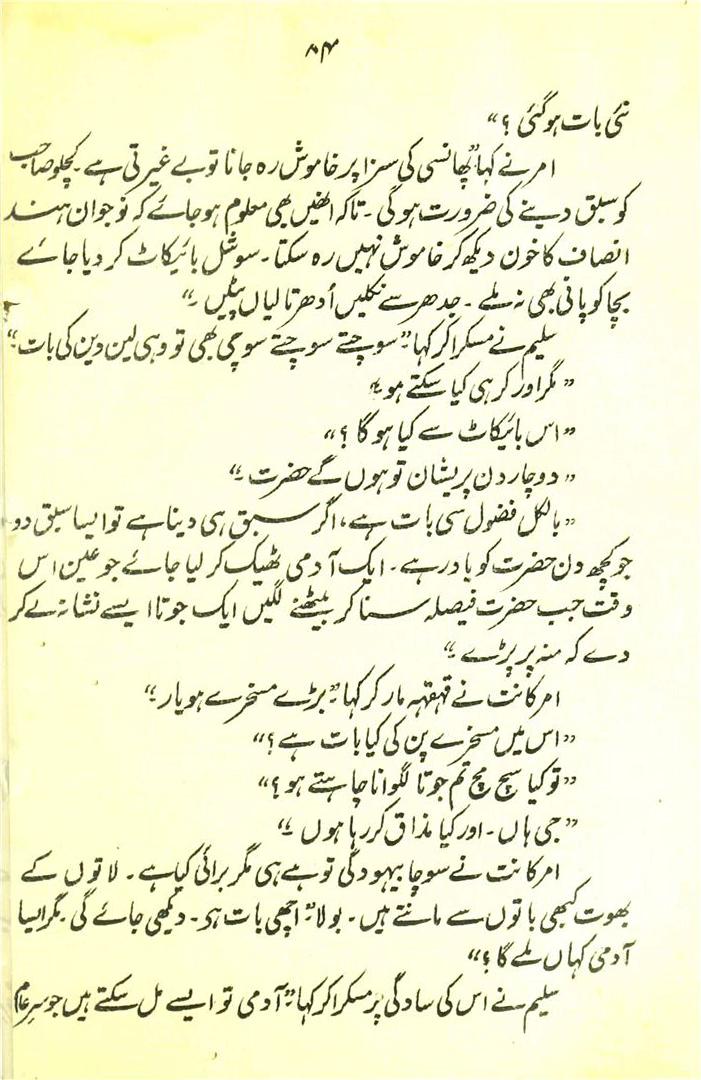 ۸۴
نئی بات ہو گئی ؟“
امر نے کہا ”پھانسی کی سزا پر خاموش رہ جانا تو بے غیرتی ہے۔ کچلو صاحب
کو سبق دینے کی ضرورت ہو گی۔ تاکہ انھیں بھی معلوم ہو جائے کہ نوجوان ہند
انصاف کا خون دیکھ کر خاموش نہیں رہ سکتا۔ سوشل بائیکاٹ کر دیا جائے
بچا کو پانی بھی نہ ملے۔ جدھر سے نکلیں اُدھر تالیاں پٹیں۔“
سلیم نے مسکرا کر کہا ”سوچتے سوچتے سوچی بھی تو وہی لین دین کی بات۔“
”مگر اور کر ہی کیا سکتے ہو۔“
”اس بائیکاٹ سے کیا ہو گا ؟“
”دو چار دن پریشان تو ہوں گے حضرت۔“
”بالکل فضول سی بات ہے، اگر سبق ہی دینا ہے تو ایسا سبق دو
جو کچھ دن حضرت کو یاد رہے۔ ایک آدمی ٹھیک کر لیا جائے جو عین اس
وقت جب حضرت فیصلہ سنا کر بیٹھنے لگیں ایک جوتا ایسے نشانہ لے کر
دے کہ منہ پر پڑے۔“
امر کانت نے قہقہہ مار کر کہا ”بڑے مسخرے ہو یار۔“
”اس میں مسخرے پن کی کیا بات ہے ؟“
”تو کیا سچ مچ تم جوتا لگوانا چاہتے ہو ؟“
”جی ہاں۔ اور کیا مذاق کر رہا ہوں۔“
امر کانت نے سوچا بیہودگی تو ہے ہی مگر برائی کیا ہے۔ لاتوں کے
بھوت کبھی باتوں سے مانتے ہیں۔ بولا ”اچھی بات ہر۔ دیکھی جائے گی۔ مگر ایسا
آدمی کہاں ملے گا ؟“
سلیم نے اس کی سادگی پر مسکرا کر کہا ”آدمی تو ایسے مل سکتے ہیں جو سرِ عام